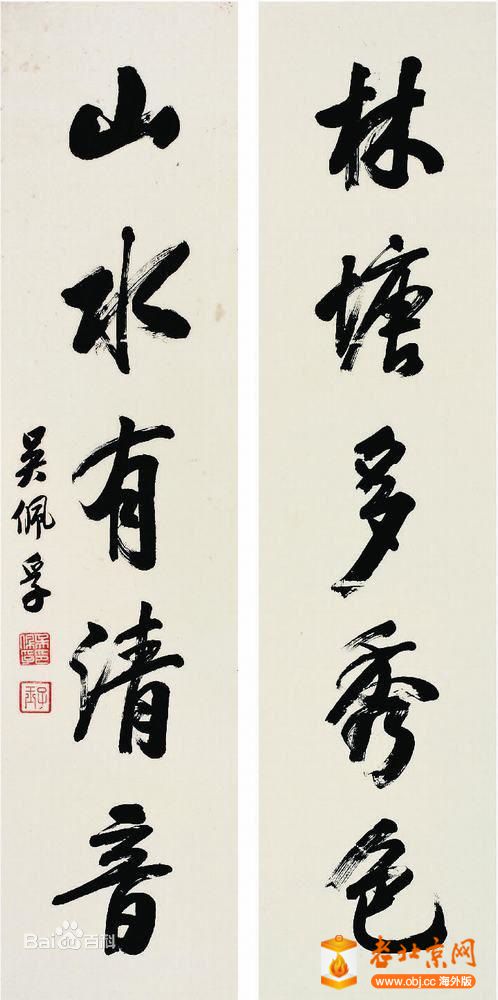 林塘多秀色
山水有清音
吴佩孚
Baidu百科
老北京网
www.obj.cc 海外版